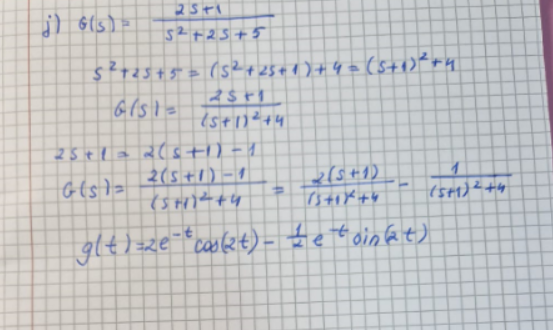 j) G(s) = (2s+1)/(s²+2s+5)
s²+2s+5 = (s²+2s+1)+4 = (s+1)²+4
G(s) = (2s+1)/((s+1)²+4)
2s+1 = 2(s+1)-1
G(s) = (2(s+1)-1)/((s+1)²+4) = (2(s+1))/((s+1)²+4) - 1/((s+1)²+4)
g(t) = 2e^(-t) cos(2t) - 1/2 e^(-t) sin(2t)